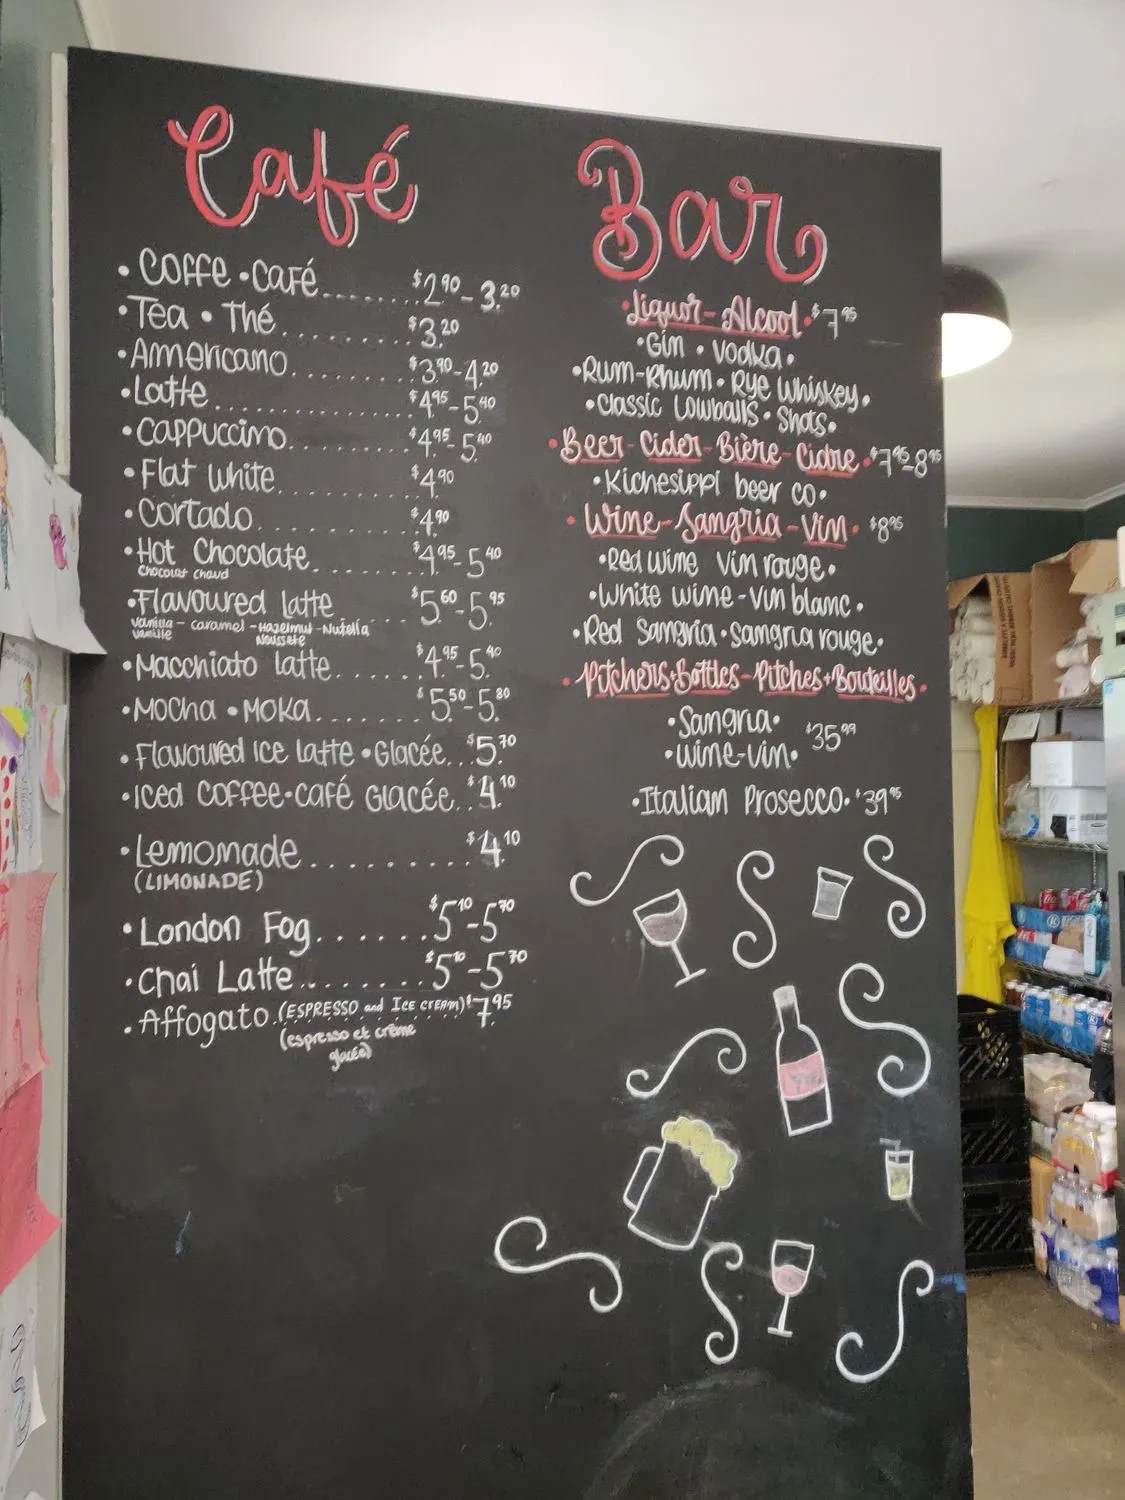 Café
• Coffe • Café ....... $2.90 - 3.20
• Tea • Thé ........ $3.20
• Americano ........ $3.90 - 4.20
• Latte .............. $4.95 - 5.40
• Cappuccino ........ $4.95 - 5.40
• Flat White ......... $4.90
• Cortado .......... $4.90
• Hot Chocolate ....... $4.95 - 5.40
Chocolat chaud
• Flavoured latte .... $5.60 - 5.95
vanilla - caramel - Hazelnut - Nutella
vanille Noissete
• Macchiato latte ...... $4.95 - 5.40
• Mocha • Moka ....... $5.50 - 5.80
• Flavoured Ice latte • Glacée .. $5.70
• Iced Coffee • café Glacée .. $4.10
• Lemonade ......... $4.10
(LIMONADE)
• London Fog ....... $5.10 - 5.70
• Chai Latte ........ $5.10 - 5.70
• Affogato (ESPRESSO and Ice cream) $7.95
(espresso et crème
glacée)
Bar
• Liquor - Alcool • $7.95
• Gin • Vodka •
• Rum - Rhum • Rye Whiskey •
• Classic Lowballs • Shots •
• Beer - Cider - Bière - Cidre • $7.95 - 8.95
• Kichesippi beer co •
• Wine - Sangria - Vin • $8.95
• Red Wine Vin rouge •
• White wine - Vin blanc •
• Red Sangria • Sangria rouge •
• Pitchers + Bottles - Pitches + Bouteilles •
• Sangria •
• Wine - Vin • $35.99
• Italian Prosecco • $39.95